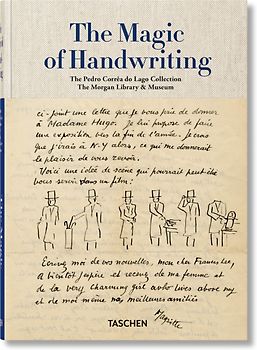 The Magic
of Handwriting
The Pedro Corrêa do Lago Collection
The Morgan Library & Museum
ci-joint une lettre que je vous prie de donner
à Madame Hugo. Je lui propose de faire
une exposition vers la fin de l'année. Je crois
que j'irais à N-Y alors, ce qui me donnerait
le plaisir de vous revoir.
Voici une idée de scène qui pourrait peut être
vous servir dans un film:
Ecrivez moi de vos nouvelles, mon cher Francis Lee,
à bientôt j'espère et recevez de ma femme et
de la very charming girl who lives above my
et de moi même, nos meilleures amitiés
Magritte
TASCHEN